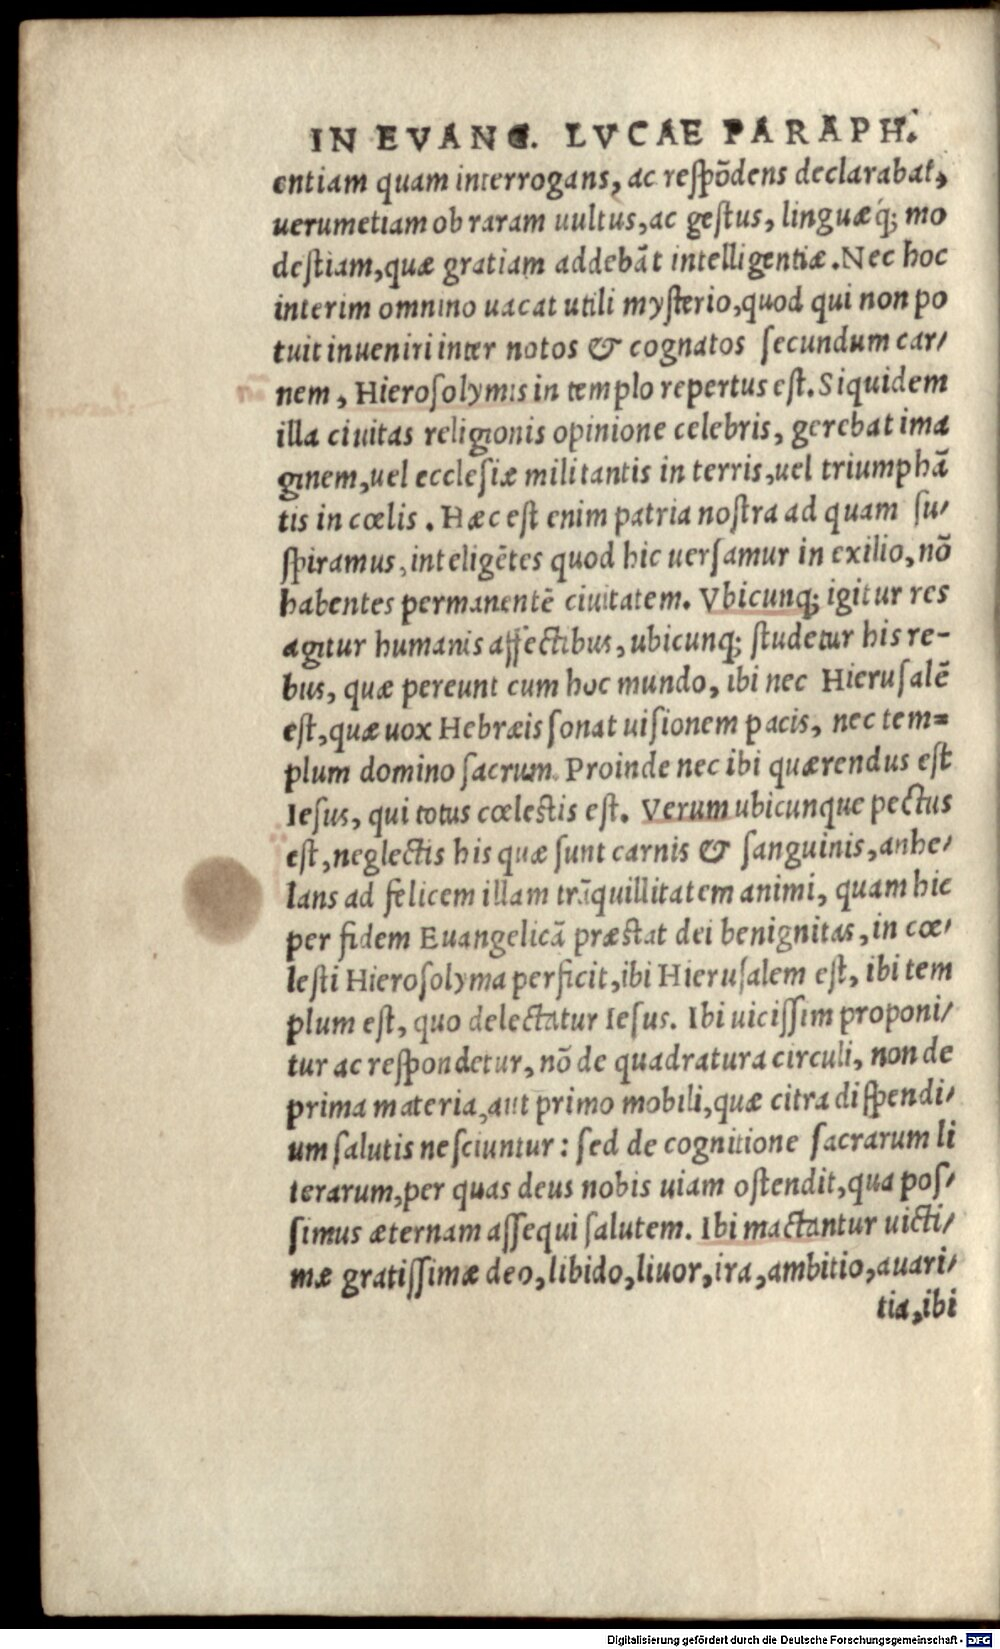 IN EVANG. LVCAE PARAPH.
entiam quam interrogans, ac respōdens declarabat,
uerumetiam ob raram uultus, ac gestus, linguæq́; mo
destiam, quæ gratiam addebāt intelligentiæ. Nec hoc
interim omnino uacat utili mysterio, quod qui non po
tuit inueniri inter notos & cognatos secundum car/
nem, Hierosolymis in templo repertus est. Siquidem
illa ciuitas religionis opinione celebris, gerebat ima
ginem, uel ecclesiæ militantis in terris, uel triumphā
tis in cœlis. Hæc est enim patria nostra ad quam su/
spiramus, inteligētes quod hic uersamur in exilio, nō
habentes permanentē ciuitatem. Vbicunq; igitur res
agitur humanis affectibus, ubicunq; studetur his re-
bus, quæ pereunt cum hoc mundo, ibi nec Hierusalē
est, quæ uox Hebræis sonat uisionem pacis, nec tem=
plum domino sacrum. Proinde nec ibi quærendus est
Iesus, qui totus cœlestis est. Verum ubicunque pectus
est, neglectis his quæ sunt carnis & sanguinis, anhe/
lans ad felicem illam trāquillitatem animi, quam hic
per fidem Euangelicā præstat dei benignitas, in cœ/
lesti Hierosolyma perficit, ibi Hierusalem est, ibi tem
plum est, quo delectatur Iesus. Ibi uicissim proponi/
tur ac respondetur, nō de quadratura circuli, non de
prima materia, aut primo mobili, quæ citra dispendi/
um salutis nesciuntur: sed de cognitione sacrarum li
terarum, per quas deus nobis uiam ostendit, qua pos/
simus æternam assequi salutem. Ibi mactantur uicti/
mæ gratissimæ deo, libido, liuor, ira, ambitio, auari/
tia, ibi
Digitalisierung gefördert durch die Deutsche Forschungsgemeinschaft - DFG